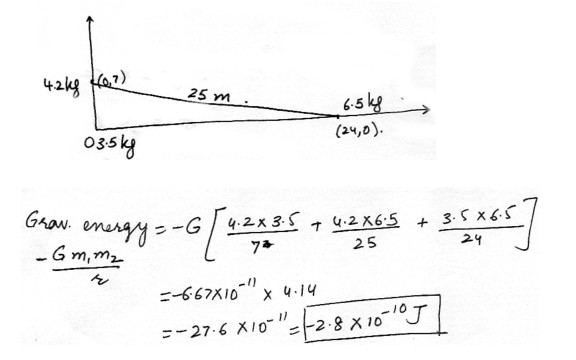 4.2kg (0,7)
25 m.
6.5kg
(24,0).
O3.5kg
Grav. energy = -G [ 4.2 × 3.5 / 7 + 4.2 × 6.5 / 25 + 3.5 × 6.5 / 24 ]
- G m₁ m₂ / r
= -6.67 × 10⁻¹¹ × 4.14
= -27.6 × 10⁻¹¹ = -2.8 × 10⁻¹⁰ J